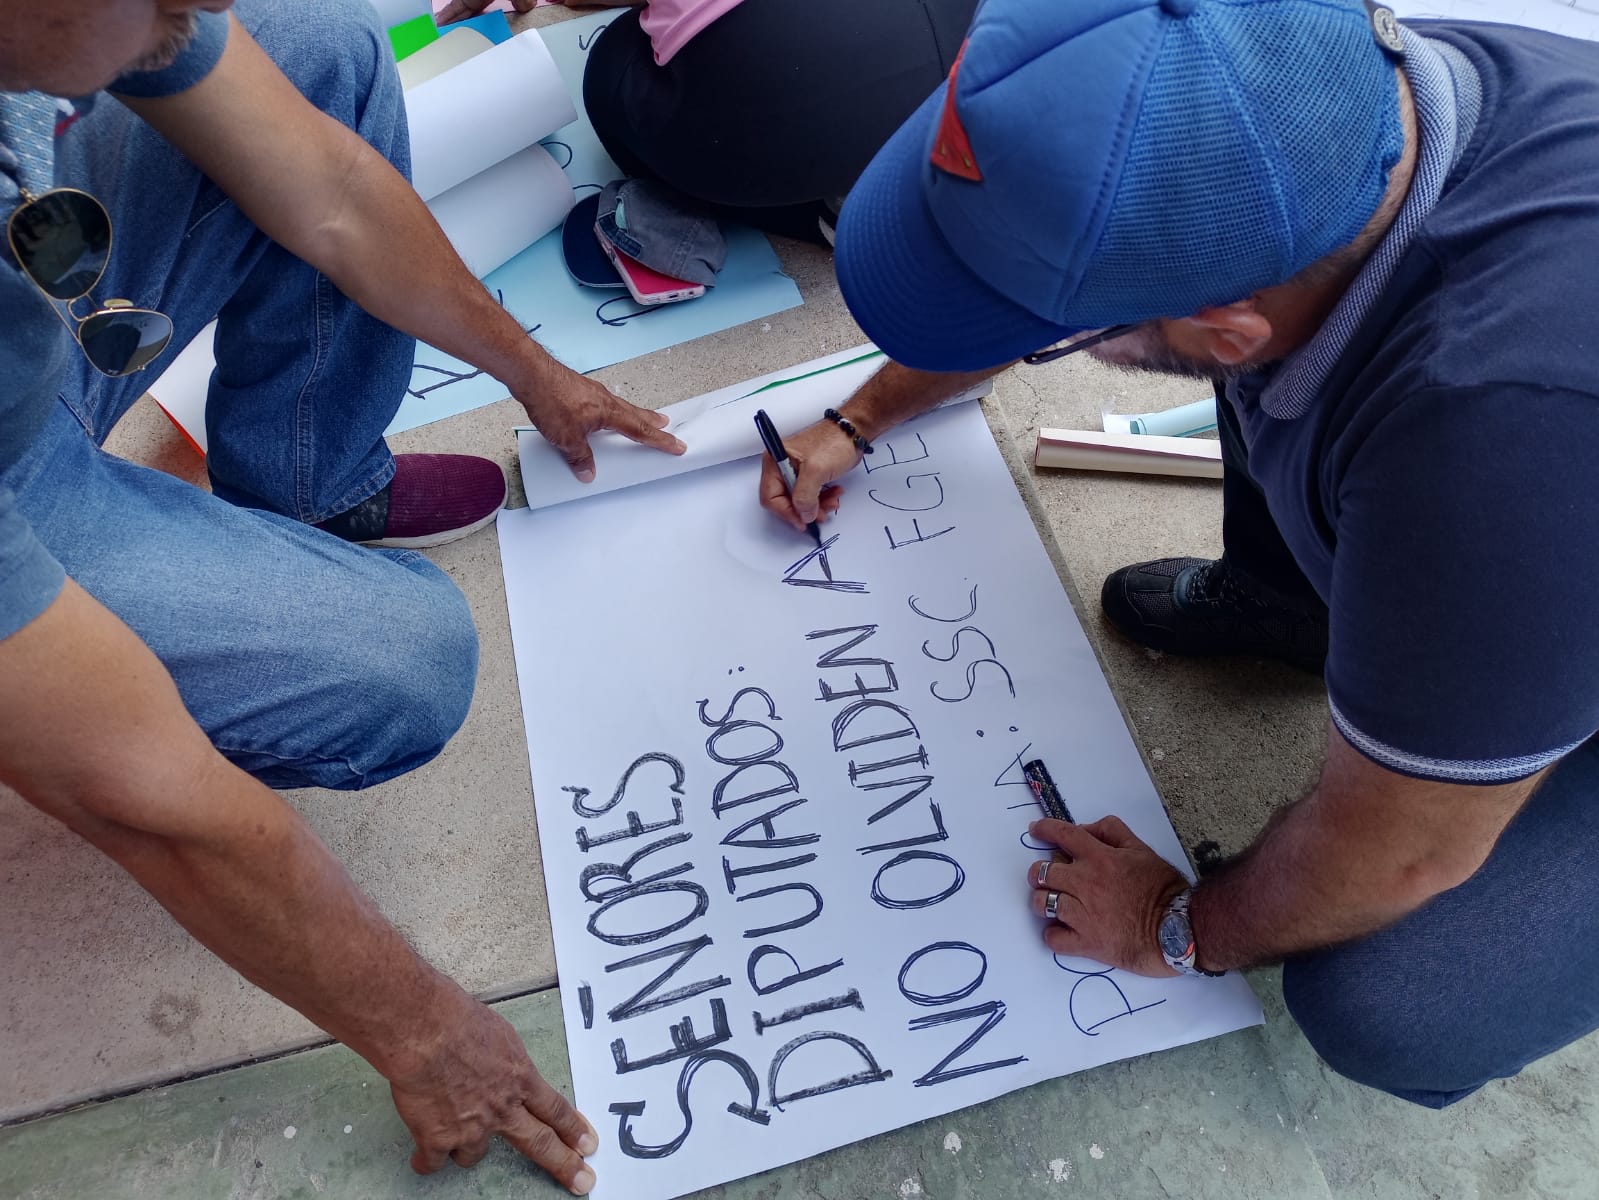 SEÑORES
DIPUTADOS:
NO OLVIDEN A
SSC FGE